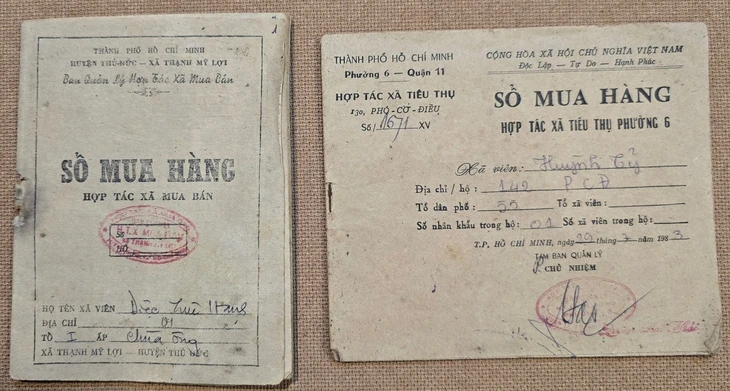 THÀNH PHỐ HỒ CHÍ MINH
HUYỆN THỦ-ĐỨC - XÃ THẠNH MỸ LỢI
Ban Quản Lý Hợp Tác Xã Mua Bán
SỔ MUA HÀNG
HỢP TÁC XÃ MUA BÁN
Số
HỌ TÊN XÃ VIÊN
ĐỊA CHỈ 01
TỔ I ẤP Chùa Ông
XÃ THẠNH MỸ LỢI - HUYỆN THỦ ĐỨC
THÀNH PHỐ HỒ CHÍ MINH
Phường 6 — Quận 11
HỢP TÁC XÃ TIÊU THỤ
130, PHÓ-CƠ-ĐIỀU
Số/ 1671 XV
CỘNG HÒA XÃ HỘI CHỦ NGHĨA VIỆT NAM
Độc Lập — Tự Do — Hạnh Phúc
SỔ MUA HÀNG
HỢP TÁC XÃ TIÊU THỤ PHƯỜNG 6
Xã viên: Huỳnh Tỷ
Địa chỉ / hộ: 142 P C Đ
Tổ dân phố: 55 Tổ xã viên:
Số nhân khẩu trong hộ: 01 Số xã viên trong hộ:
T.P. HỒ CHÍ MINH, ngày 20 tháng 7 năm 1983
TM BAN QUẢN LÝ
CHỦ NHIỆM